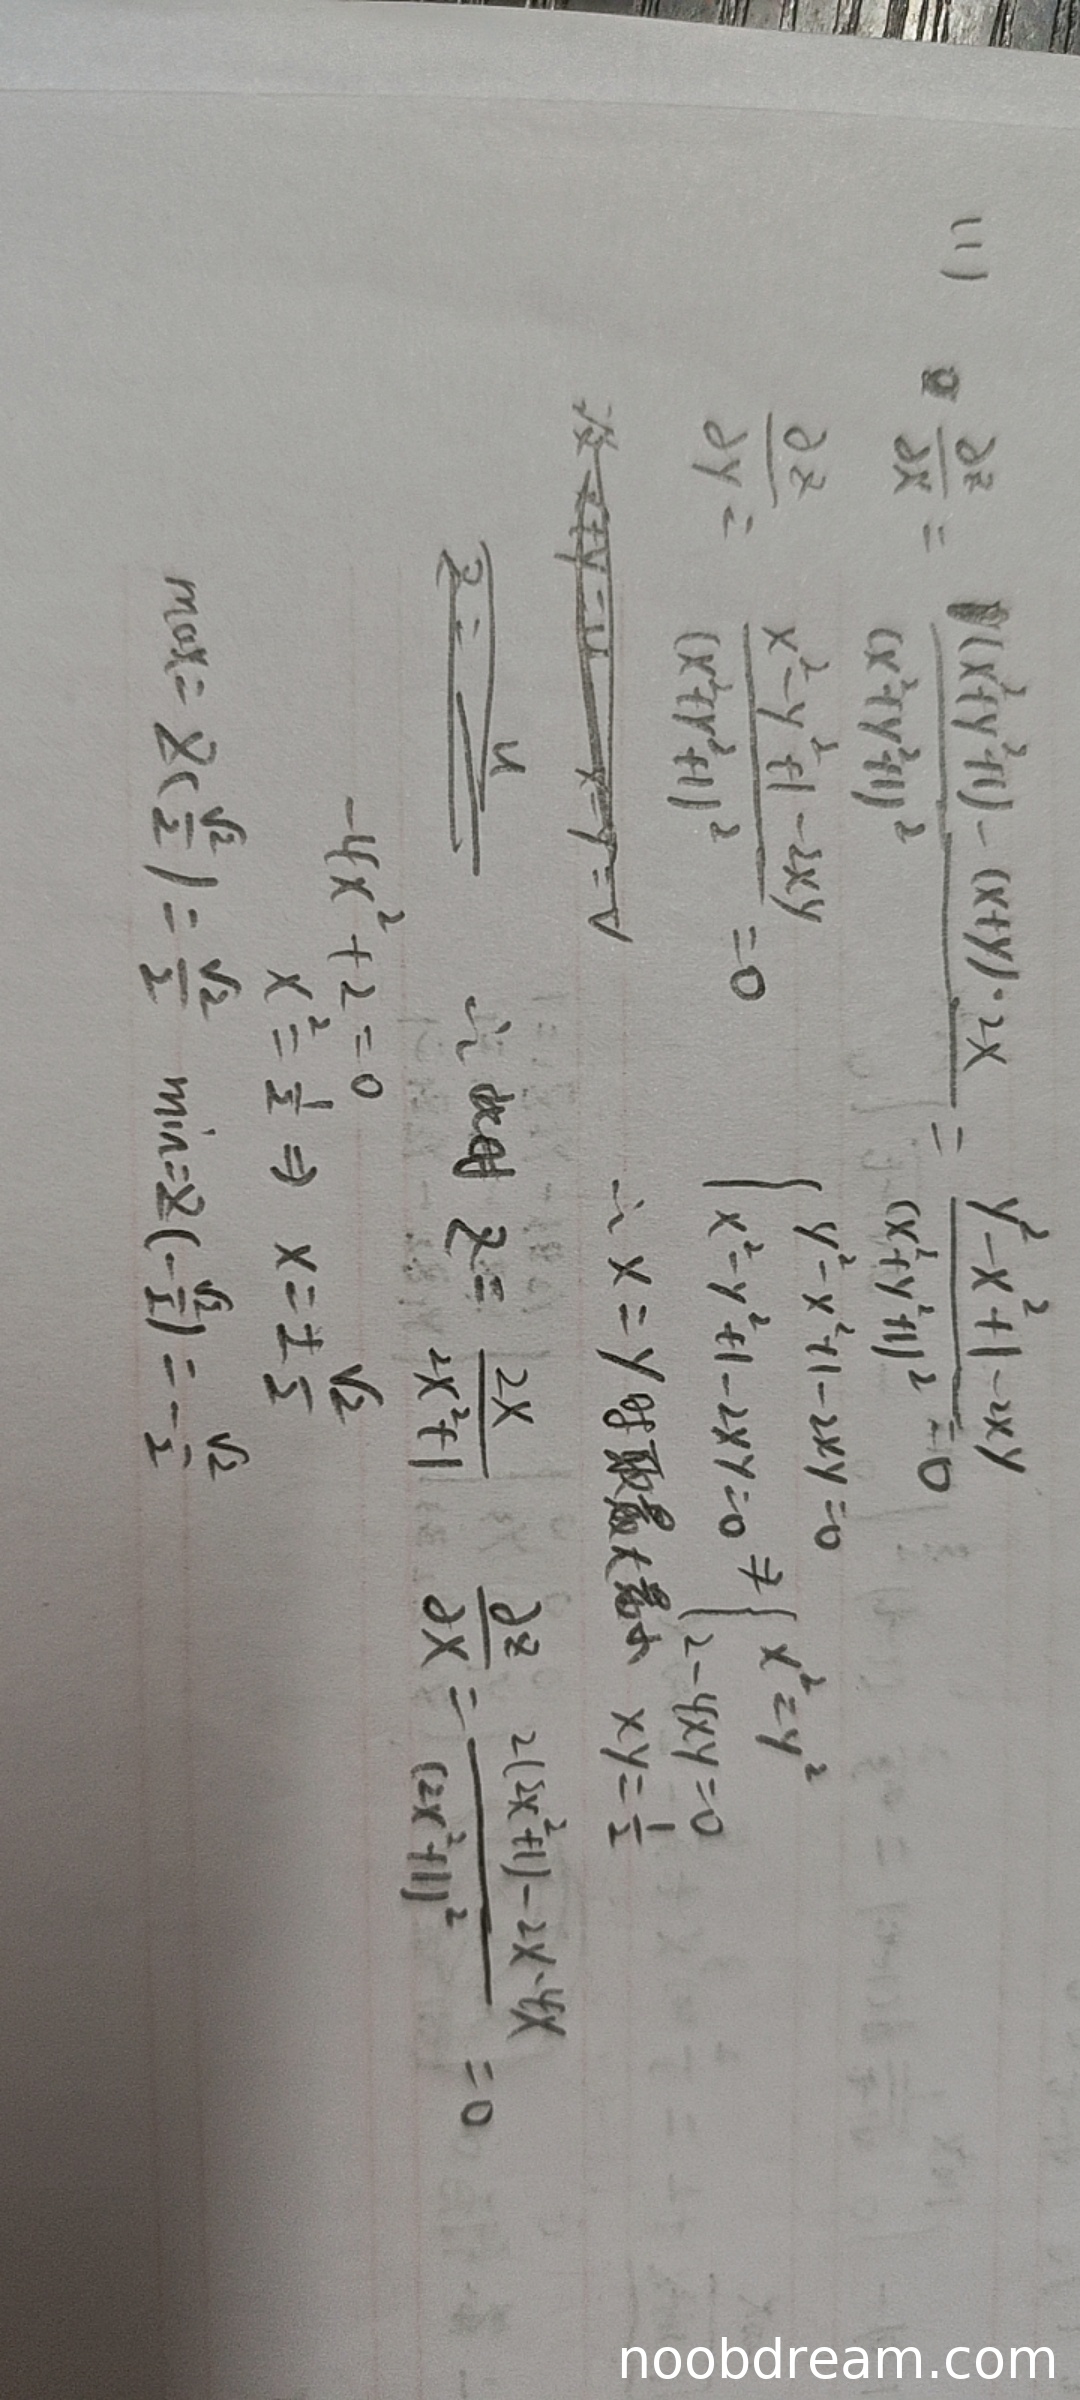 (1) ∂z/∂x = ((x²+y²+1) - (x+y)·2x)/(x²+y²+1)² = (y²-x²+1-2xy)/(x²+y²+1)² = 0
∂z/∂y = (x²-y²+1-2xy)/(x²+y²+1)² = 0 { y²-x²+1-2xy=0 x²-y²+1-2xy=0 ⇒ { x²=y² 2-4xy=0
x+y=u x-y=v ∴ x=y时取最大最小 xy=1/2
z= u ∴ 此时 z= 2x/(2x²+1) ∂z/∂x = (2(2x²+1)-2x·4x)/(2x²+1)² =0
-4x²+2=0
x²=1/2 ⇒ x=±√2/2
max=z(√2/2)=√2/2 min=z(-√2/2)=-√2/2
noobdream.com